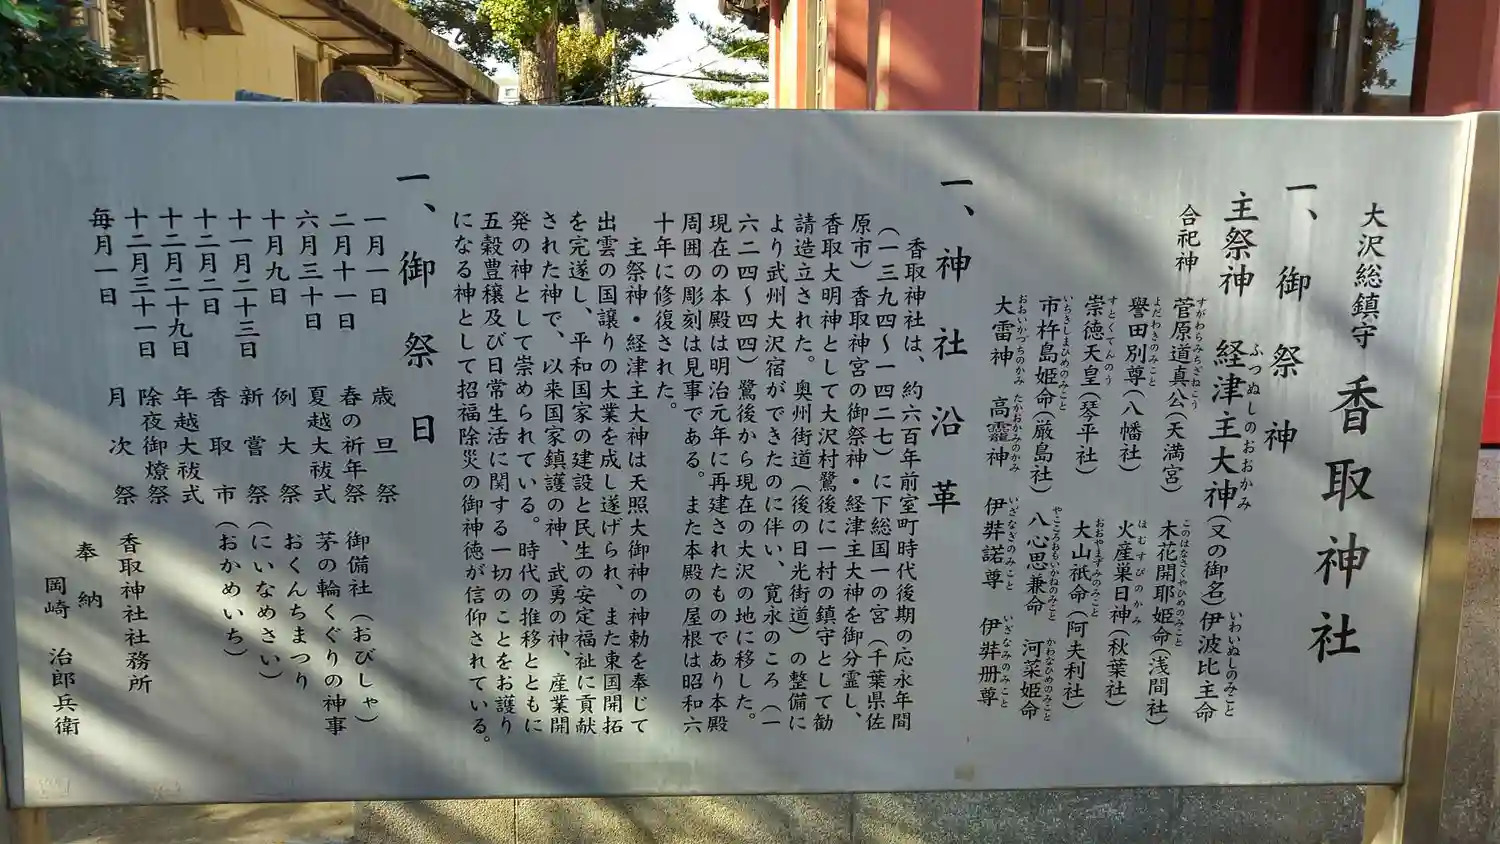 大沢総鎮守 香取神社
一、御祭神
主祭神 経津主大神(又の御名)伊波比主命
ふつぬしのおおかみ いわいぬしのみこと
合祀神
菅原道真公(天満宮) 木花開耶姫命(浅間社)
すがわらみちざねこう このはなさくやひめのみこと
誉田別尊(八幡社) 火産巣日神(秋葉社)
よだわきのみこと ほむすびのかみ
崇徳天皇(琴平社) 大山祇命(阿夫利社)
すとくてんのう おおやまずみのみこと
市杵島姫命(厳島社) 八心思兼命 河菜姫命
いちきしまひめのみこと やごころおもいかねのみこと かわなひめのみこと
大雷神 高龗神 伊弉諾尊 伊弉册尊
おおいかづちのかみ たかおかみのかみ いざなぎのみこと いざなみのみこと
一、神社沿革
香取神社は、約六百年前室町時代後期の応永年間
(一三九四〜一四二七)に下総国一の宮(千葉県佐
原市)香取神宮の御祭神・経津主大神を御分霊し、
香取大明神として大沢村鷺後に一村の鎮守として勧
請造立された。奥州街道(後の日光街道)の整備に
より武州大沢宿ができたのに伴い、寛永のころ(一
六二四〜四四)鷺後から現在の大沢の地に移した。
現在の本殿は明治元年に再建されたものであり本殿
周囲の彫刻は見事である。また本殿の屋根は昭和六
十年に修復された。
主祭神・経津主大神は天照大御神の神勅を奉じて
出雲の国譲りの大業を成し遂げられ、また東国開拓
を完遂し、平和国家の建設と民生の安定福祉に貢献
された神で、以来国家鎮護の神、武勇の神、産業開
発の神として崇められている。時代の推移とともに
五穀豊穣及び日常生活に関する一切のことをお護り
になる神として招福除災の御神徳が信仰されている。
一、御祭日
一月一日 歳旦祭
二月十一日 春の祈年祭 御備社(おびしゃ)
六月三十日 夏越大祓式 茅の輪くぐりの神事
十月九日 例大祭 おくんちまつり
十一月二十三日 新嘗祭 (にいなめさい)
十二月二日 香取市 (おかめいち)
十二月二十九日 年越大祓式
十二月三十一日 除夜御燎祭
毎月一日 月次祭
香取神社社務所
奉納 岡崎 治郎兵衛